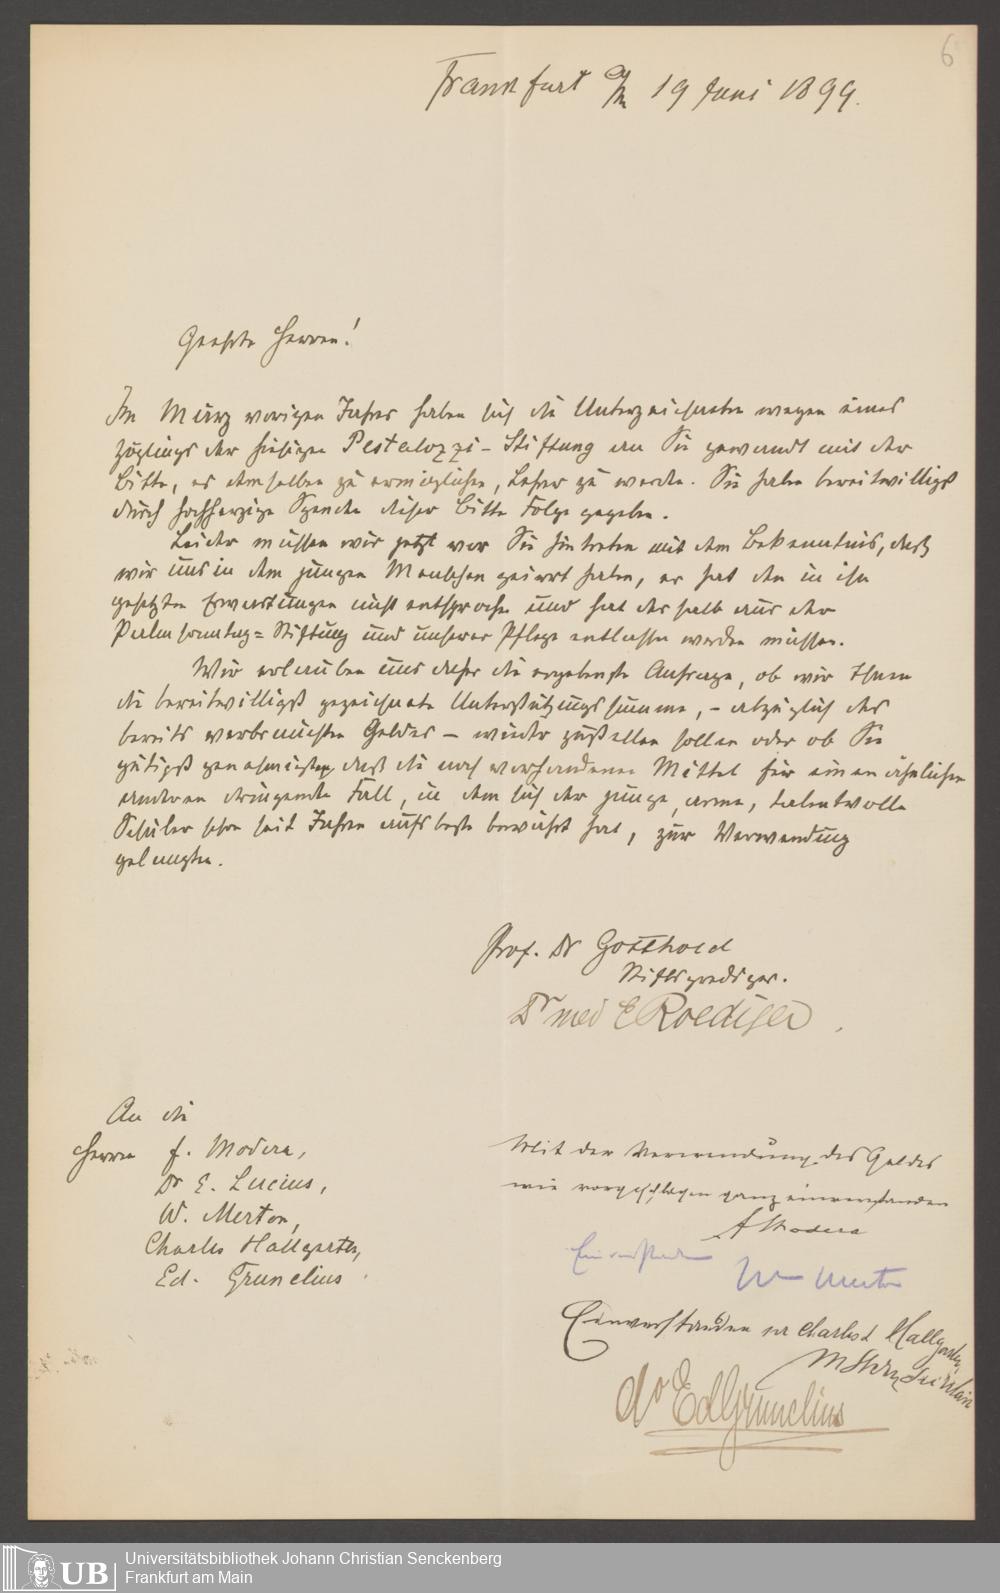 6
Frankfurt a/M 19 Juni 1899.
Geehrte Herren!
Im März vorigen Jahres haben sich die Unterzeichneten wegen eines
Zöglings der hiesigen Pestalozzi-Stiftung an Sie gewandt mit der
Bitte, es demselben zu ermöglichen, Lehrer zu werden. Sie haben bereitwilligst
durch hochherzige Spenden dieser Bitte Folge gegeben.
Leider müssen wir jetzt vor Sie hintreten mit dem Bekenntnis, daß
wir uns in dem jungen Menschen geirrt haben, er hat den in ihn
gesetzten Erwartungen nicht entsprochen und hat deshalb aus der
Palmsonntag=Stiftung und unserer Pflege entlassen werden müssen.
Wir erlauben uns daher die ergebenste Anfrage, ob wir Ihnen
die bereitwilligst gezeichnete Unterstützungssumme, - abzüglich des
bereits verbrauchten Geldes - wieder zustellen sollen oder ob Sie
gütigst genehmigten, daß die noch vorhandenen Mittel für einen ähnlichen
anderen dringenden Fall, in dem sich der junge, arme, talentvolle
Schüler schon seit Jahren aufs beste bewährt hat, zur Verwendung
gelangten.
Prof. Dr Gotthold
Stiftsprediger.
Dr med E Roediger
An die
Herren F. Modera,
Dr E. Lucius,
W. Merton,
Charles Hallgarten,
Ed. Grunelius
Mit der Verwendung des Geldes
wie vorgeschlagen ganz einverstanden
F Modera
Einverstanden W Merton
Einverstanden Charles L Hallgarten
do Ed Grunelius
Universitätsbibliothek Johann Christian Senckenberg
Frankfurt am Main
UB